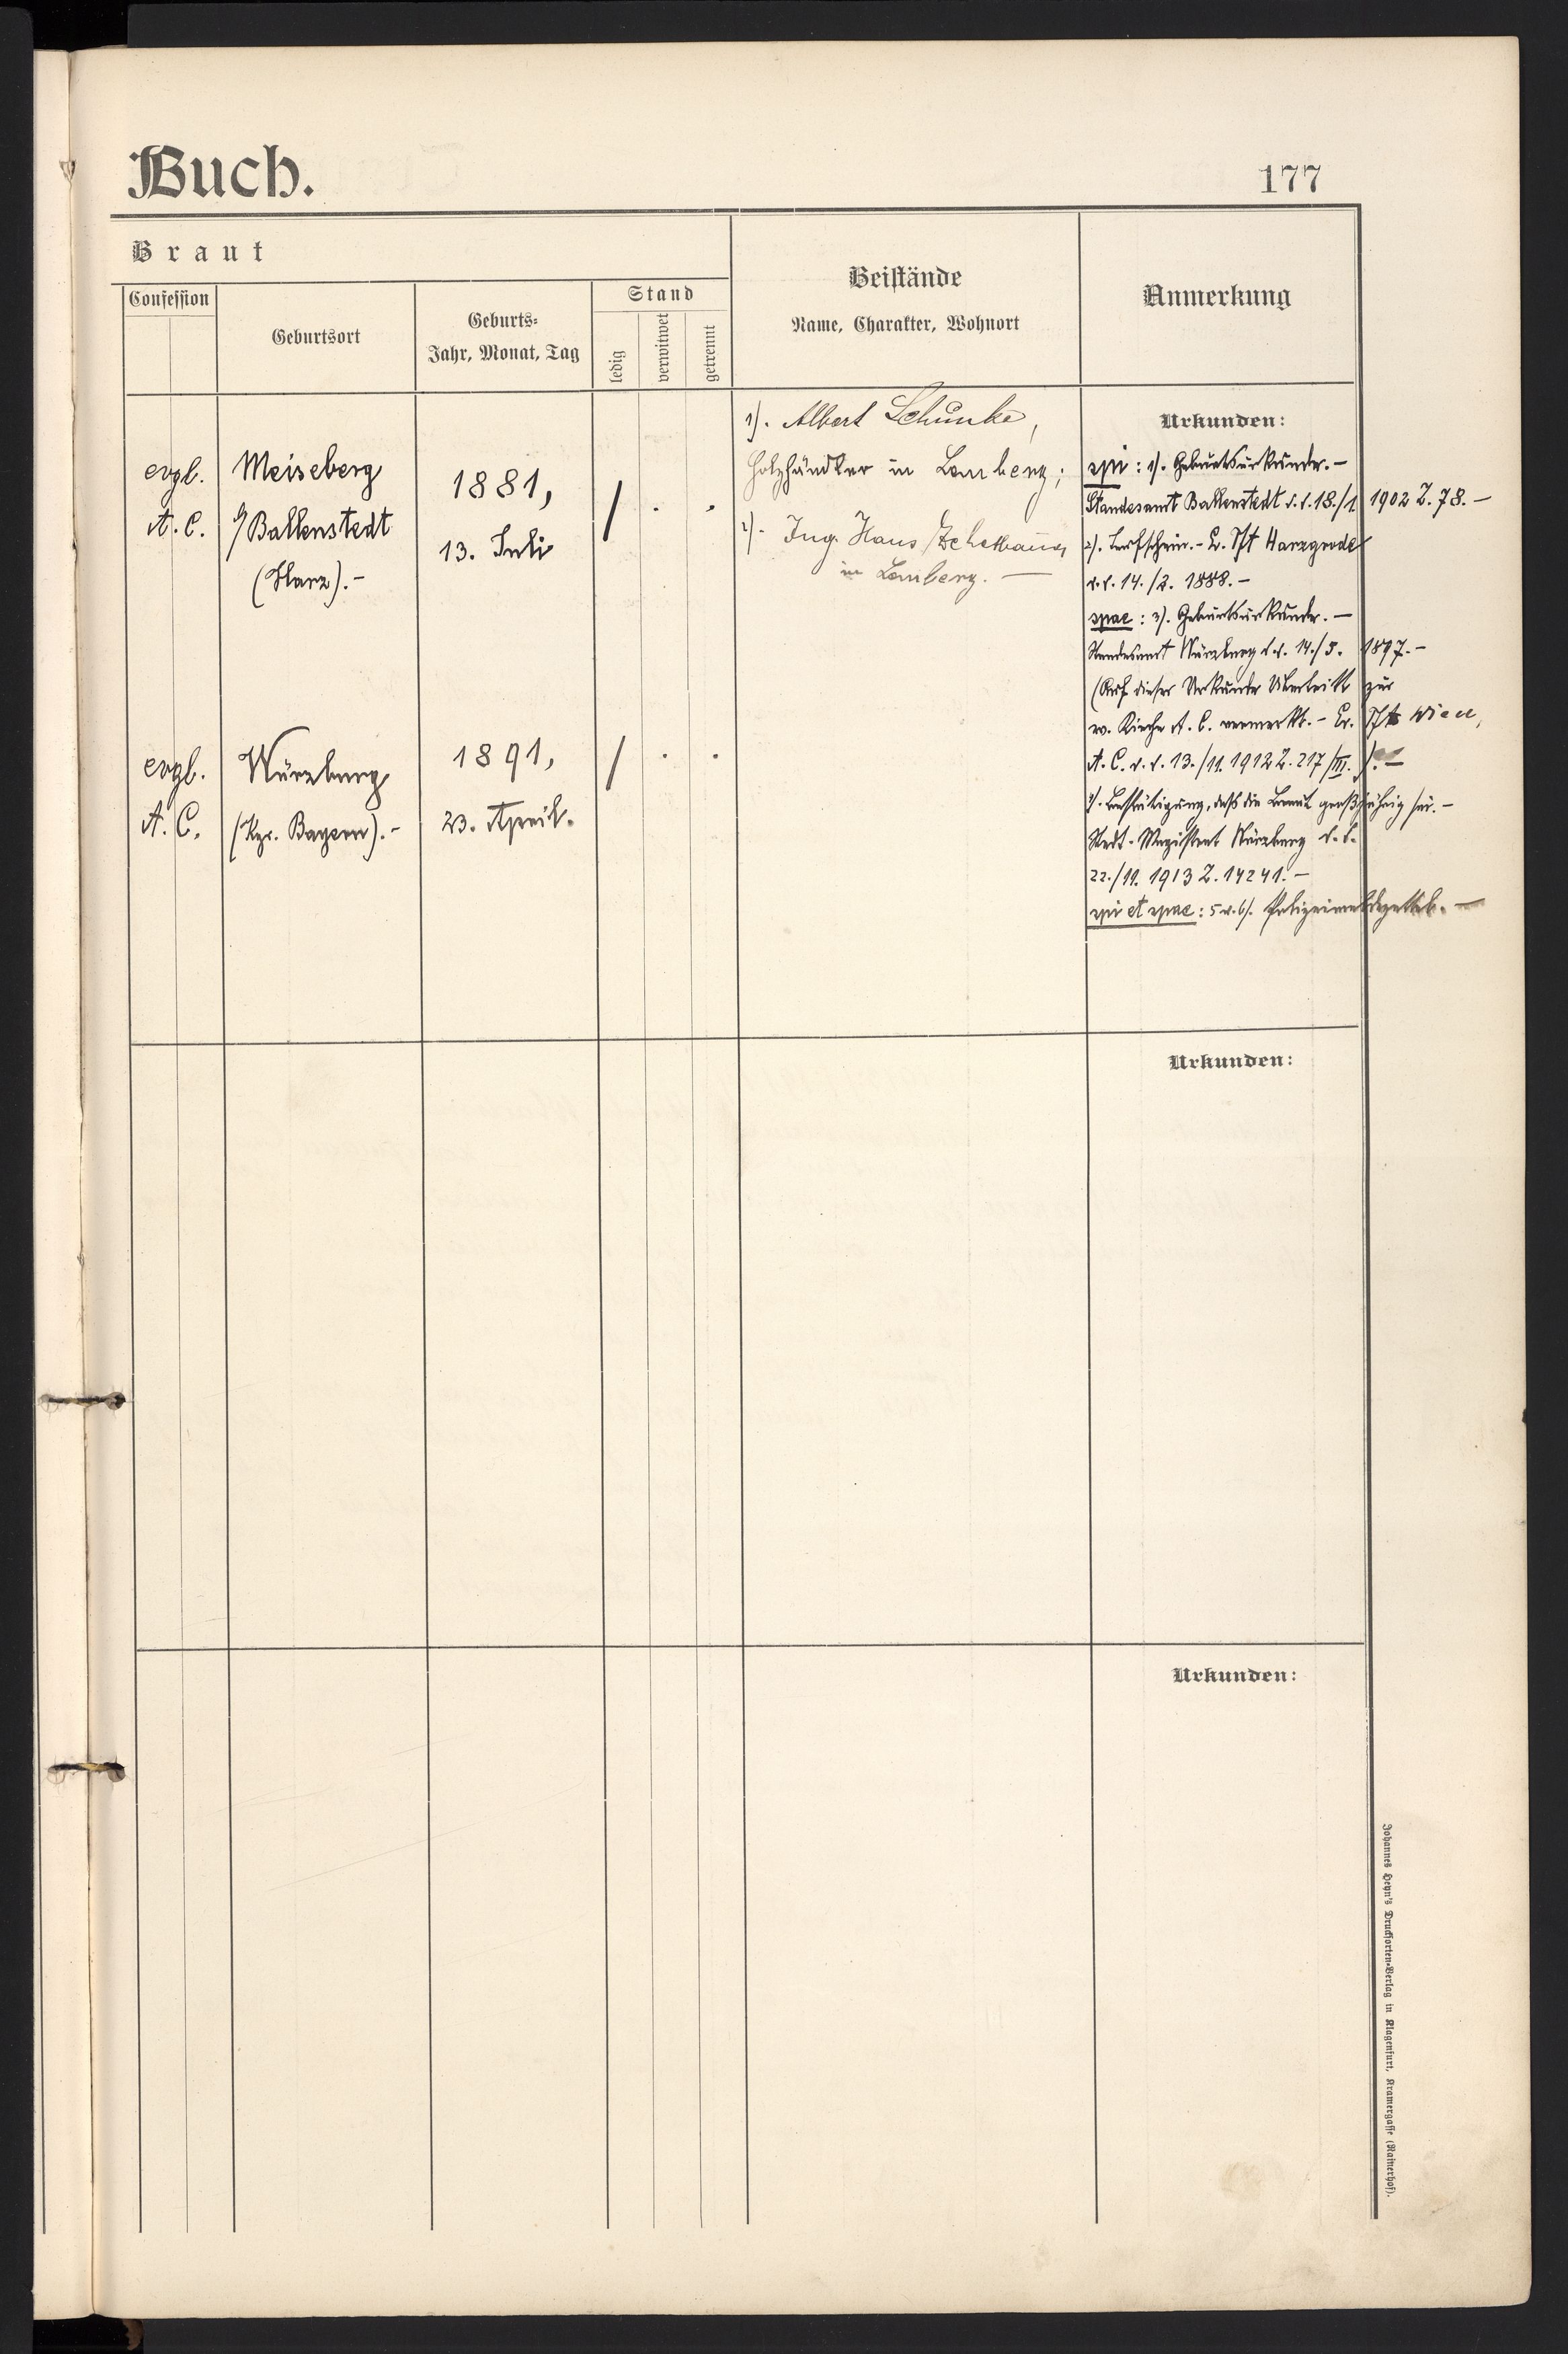 Buch.
177
Braut
Confession
Geburtsort
Geburts-
Jahr, Monat, Tag
Stand
ledig
verwitwet
getrennt
Beistände
Name, Charakter, Wohnort
Anmerkung
evgl.
A. C.
Meiseberg
b/Ballenstedt
(Harz).-
1881,
13. Juli
/ . .
1). Albert Schunke,
Holzhändler in Lemberg;
2). Ing. Hans
in Lemberg. —
Urkunden:
spi: 1). Geburtsurkunde.—
Standesamt Ballenstedt d.d. 18./1. 1902 Z. 78.—
2). Taufschein.- Ev. Pft Harzgerode
d.d. 14./2. 1888.—
spae: 3). Geburtsurkunde.—
Standesamt Würzburg d.d. 14./5. 1897.—
(Auf dieser Urkunde Übertritt zur
ev. Kirche A. C. vermerkt.- Ev. Pft Wien,
A. C. d.d. 13./11. 1912 Z. 217/III.).—
4). Bestätigung, daß die Braut großjährig sei.—
Stadt-Magistrat Würzburg d.d.
22./11. 1913 Z. 14241.—
spi et spae: 5 u. 6). Polizeimeldezettel.—
evgl.
A. C.
Würzburg
(Kgr. Bayern).-
1891,
23. April.
/ . .
Urkunden:
Urkunden:
Johannes Heyn's Drucksorten-Verlag in Klagenfurt, Kramergasse (Rainerhof).